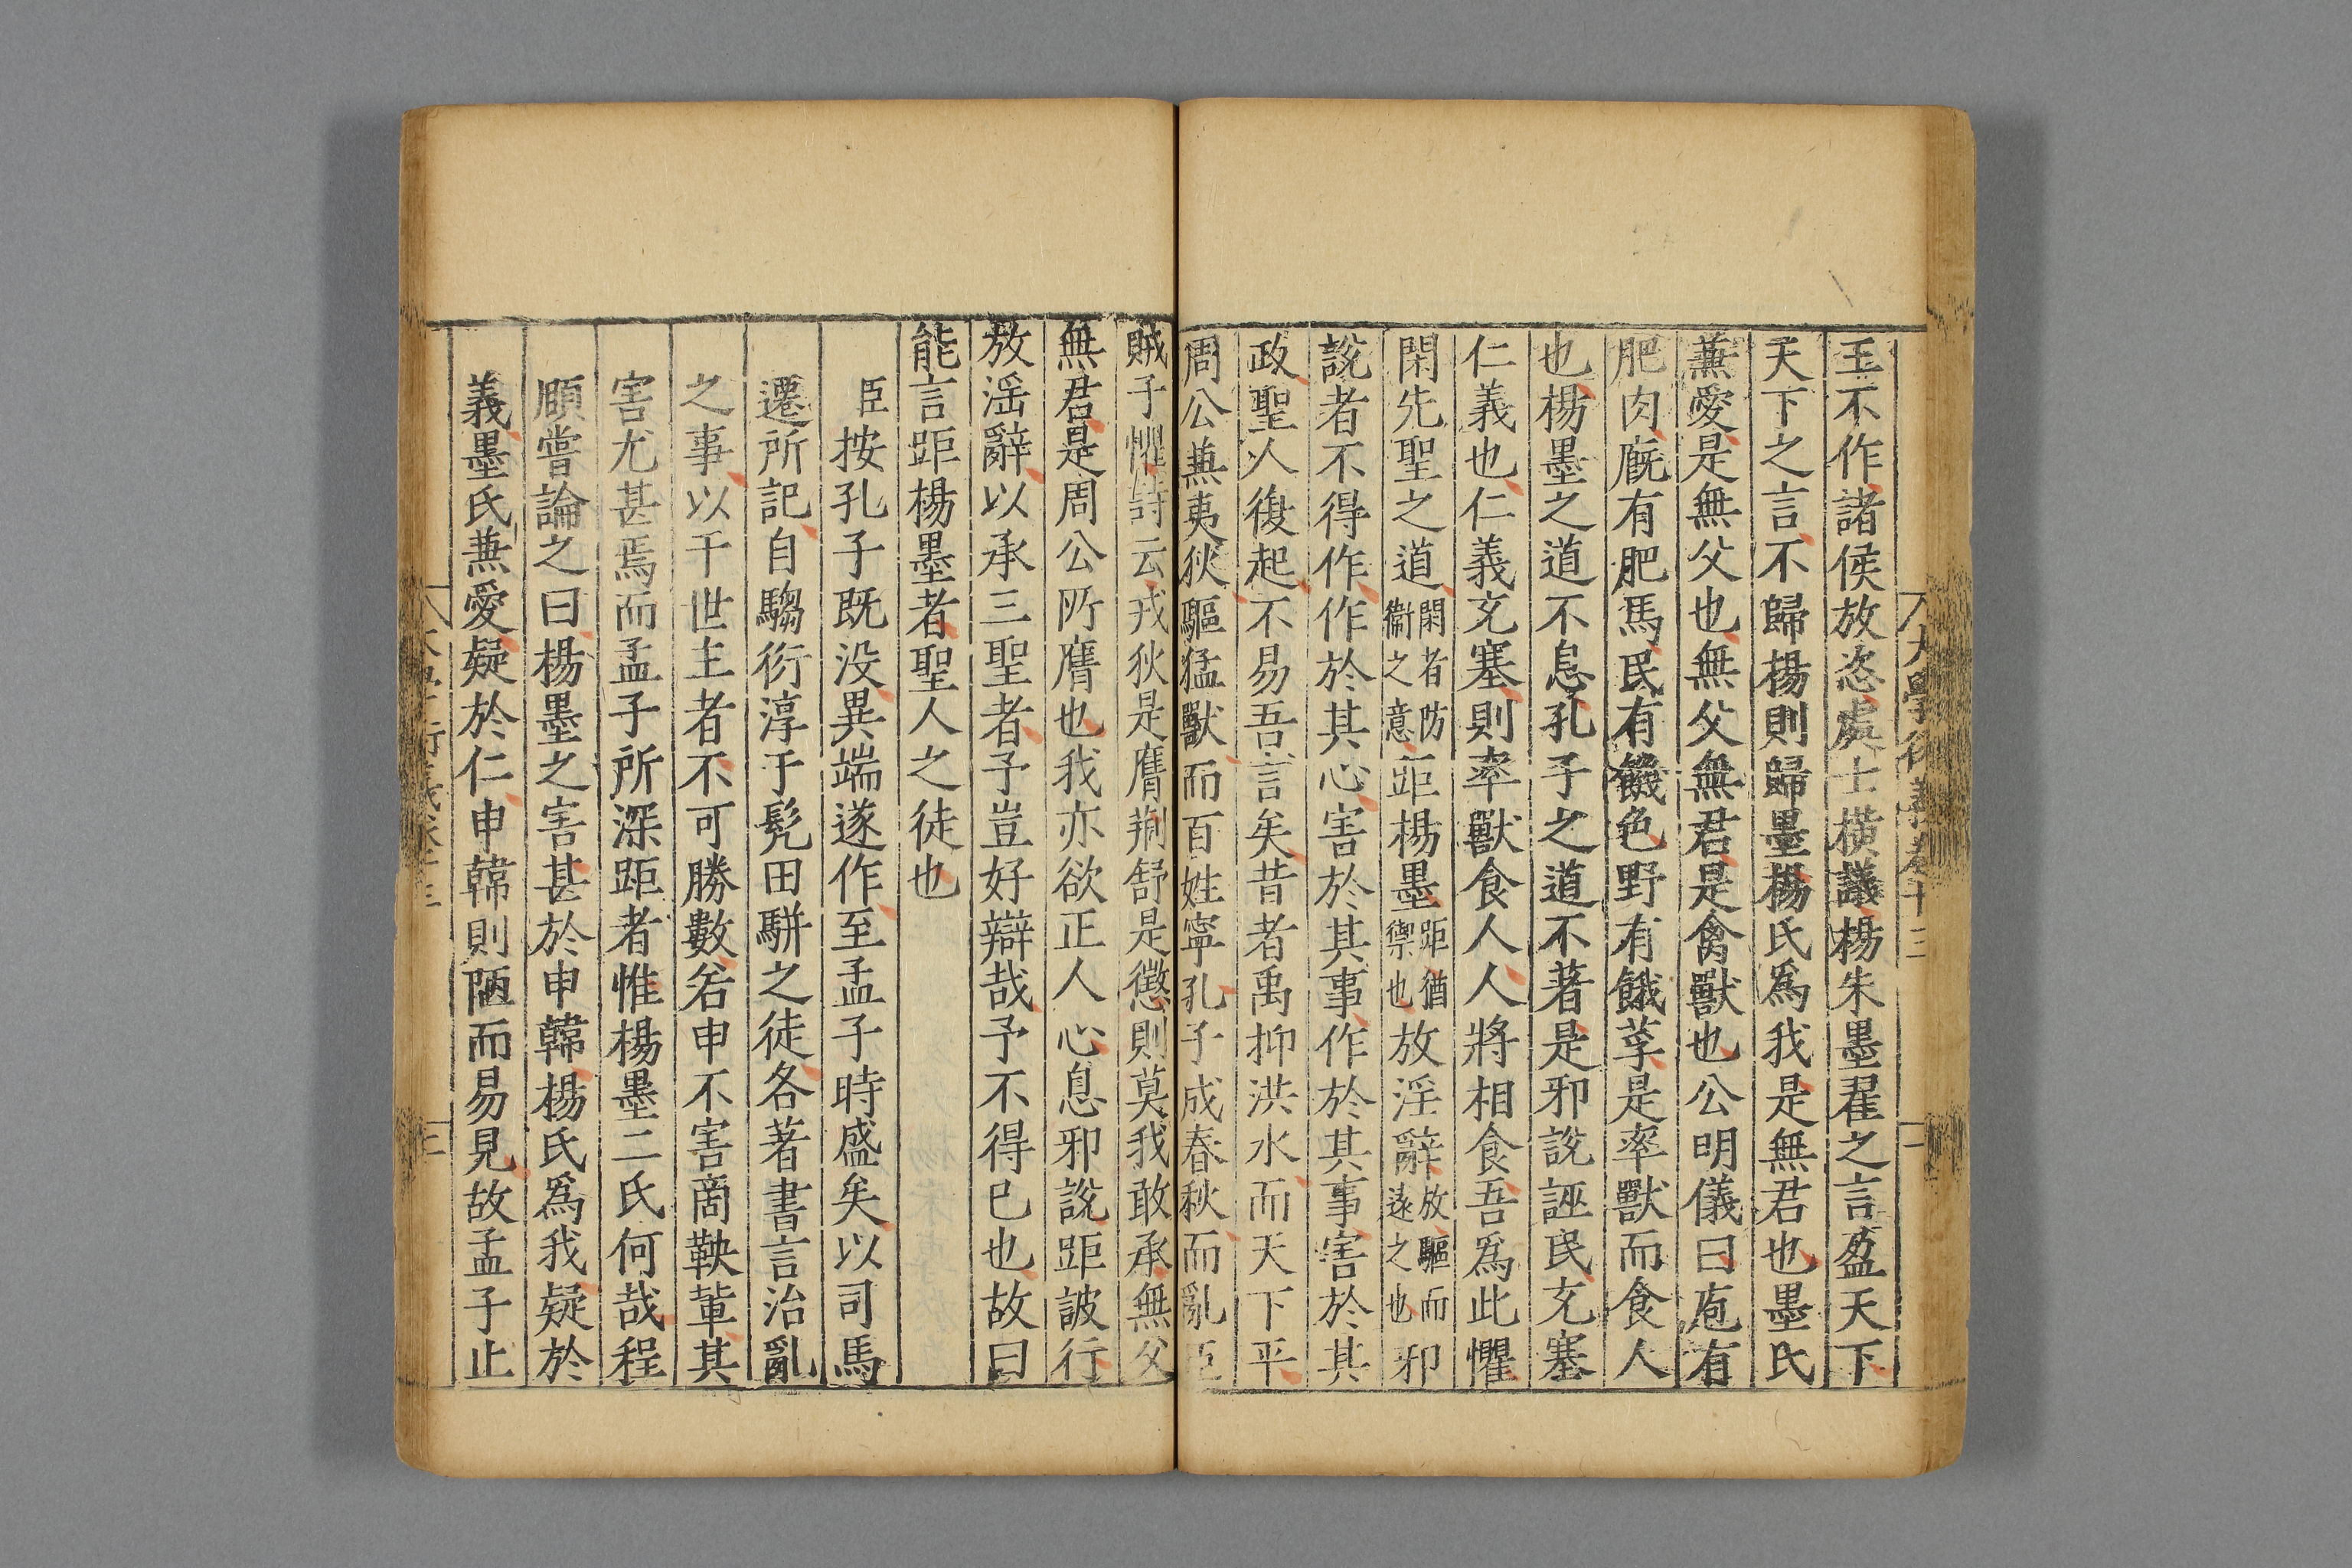 大學衍義卷十三 二
王不作諸侯放恣處士橫議楊朱墨翟之言盈天下
天下之言不歸楊則歸墨楊氏爲我是無君也墨氏
兼愛是無父也無父無君是禽獸也公明儀曰庖有
肥肉廐有肥馬民有饑色野有餓莩是率獸而食人
也楊墨之道不息孔子之道不著是邪說誣民充塞
仁義也仁義充塞則率獸食人人將相食吾爲此懼
閑先聖之道閑者防衞之意距楊墨距猶禦也放淫辭放驅而遠之也邪
說者不得作作於其心害於其事作於其事害於其
政聖人復起不易吾言矣昔者禹抑洪水而天下平
周公兼夷狄驅猛獸而百姓寧孔子成春秋而亂臣
賊子懼詩云戎狄是膺荆舒是懲則莫我敢承無父
無君是周公所膺也我亦欲正人心息邪說距詖行
放滛辭以承三聖者予豈好辯哉予不得已也故曰
能言距楊墨者聖人之徒也
臣按孔子既没異端遂作至孟子時盛矣以司馬
遷所記自騶衍淳于髠田駢之徒各著書言治亂
之事以干世主者不可勝數若申不害商鞅輩其
害尤甚焉而孟子所深距者惟楊墨二氏何哉程
頤嘗論之曰楊墨之害甚於申韓楊氏爲我疑於
義墨氏兼愛疑於仁申韓則陋而易見故孟子止
大學衍義卷十三 三